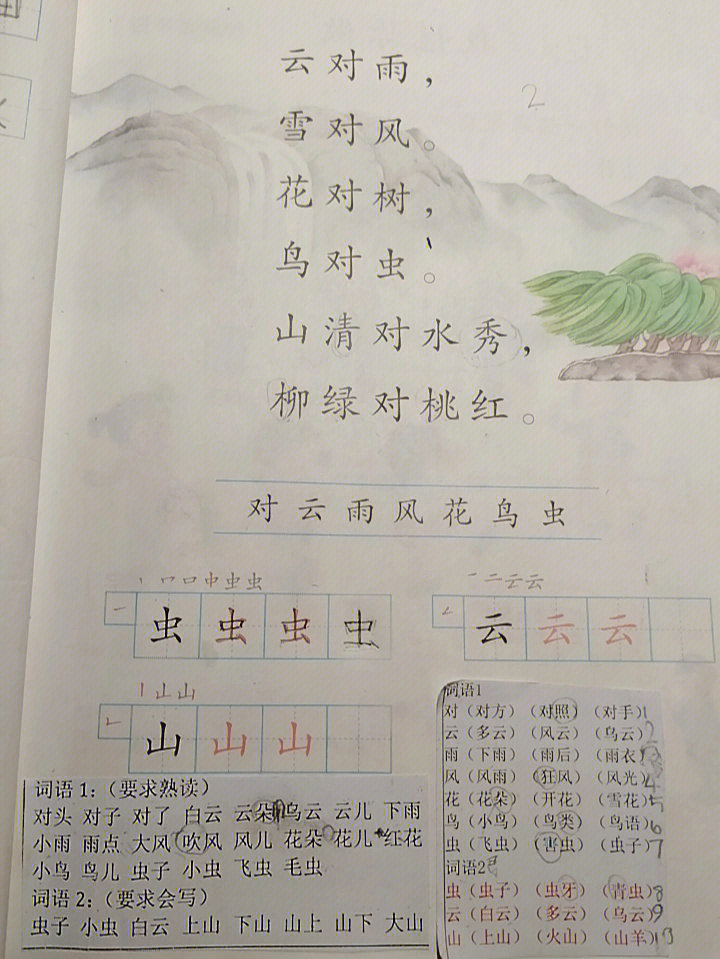 云对雨，
2
雪对风。
花对树，
鸟对虫。
山清对水秀，
柳绿对桃红。
对 云 雨 风 花 鸟 虫
虫 虫 虫 虫
云 云 云
山 山 山
词语1：（要求熟读）
对头 对子 对了 白云 云朵 乌云 云儿 下雨
小雨 雨点 大风 吹风 风儿 花朵 花儿 红花
小鸟 鸟儿 虫子 小虫 飞虫 毛虫
词语2：（要求会写）
虫子 小虫 白云 上山 下山 山上 山下 大山
词语1
对（对方）（对照）（对手）1
云（多云）（风云）（乌云）2
雨（下雨）（雨后）（雨衣）3
风（风雨）（狂风）（风光）4
花（花朵）（开花）（雪花）5
鸟（小鸟）（鸟类）（鸟语）6
虫（飞虫）（害虫）（虫子）7
词语2
虫（虫子）（虫牙）（青虫）8
云（白云）（多云）（乌云）9
山（上山）（火山）（山羊）10